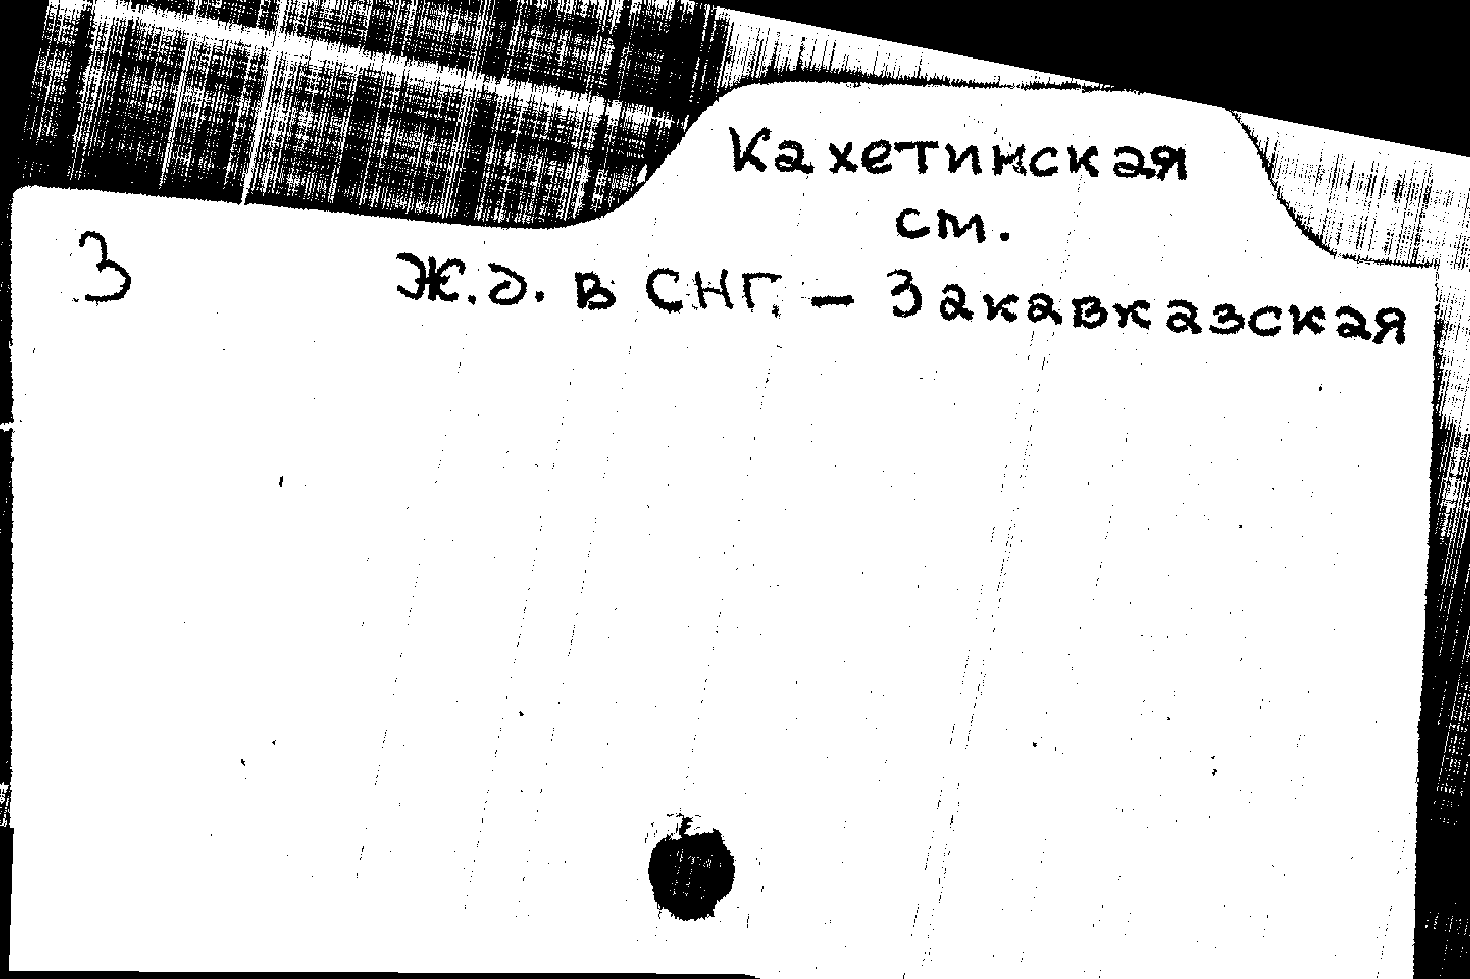 Кахетинская
ст.
З
Ж.д. в СНГ. — Закавказская